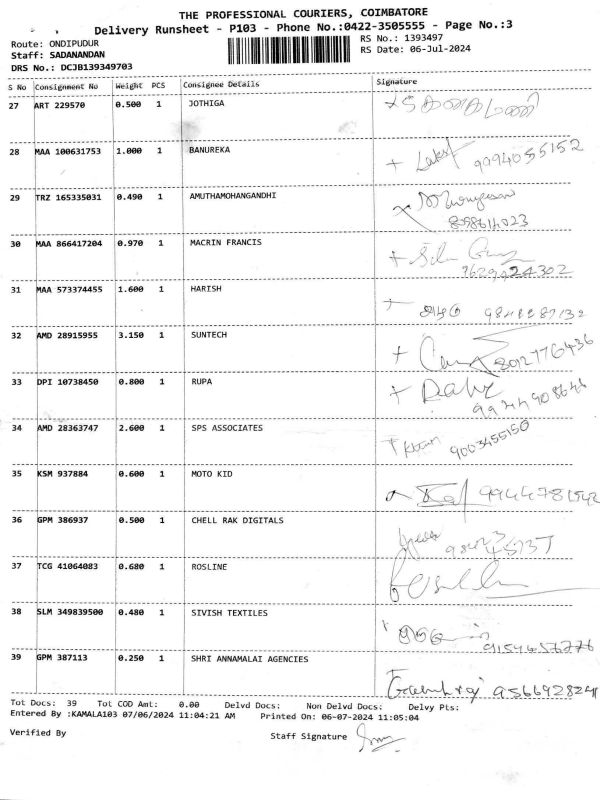 THE PROFESSIONAL COURIERS, COIMBATORE
Delivery Runsheet - P103 - Phone No.:0422-3505555 - Page No.:3
Route: ONDIPUDUR RS No.: 1393497
Staff: SADANANDAN RS Date: 06-Jul-2024
DRS No.: DCJB139349703
S No Consignment No Weight PCS Consignee Details Signature
27 ART 229570 0.500 1 JOTHIGA
28 MAA 100631753 1.000 1 BANUREKA 9994055152
29 TRZ 165335031 0.490 1 AMUTHAMOHANGANDHI
30 MAA 866417204 0.970 1 MACRIN FRANCIS
7629924302
31 MAA 573374455 1.600 1 HARISH
32 AMD 28915955 3.150 1 SUNTECH 8012776436
33 DPI 10738450 0.800 1 RUPA
9944908646
34 AMD 28363747 2.600 1 SPS ASSOCIATES 9003455150
35 KSM 937884 0.600 1 MOTO KID 9944781542
36 GPM 386937 0.500 1 CHELL RAK DIGITALS
37 TCG 41064083 0.680 1 ROSLINE
38 SLM 349839500 0.480 1 SIVISH TEXTILES
9154657776
39 GPM 387113 0.250 1 SHRI ANNAMALAI AGENCIES
Tot Docs: 39 Tot COD Amt: 0.00 Delvd Docs: Non Delvd Docs: Delvy Pts:
Entered By :KAMALA103 07/06/2024 11:04:21 AM Printed On: 06-07-2024 11:05:04
Verified By Staff Signature